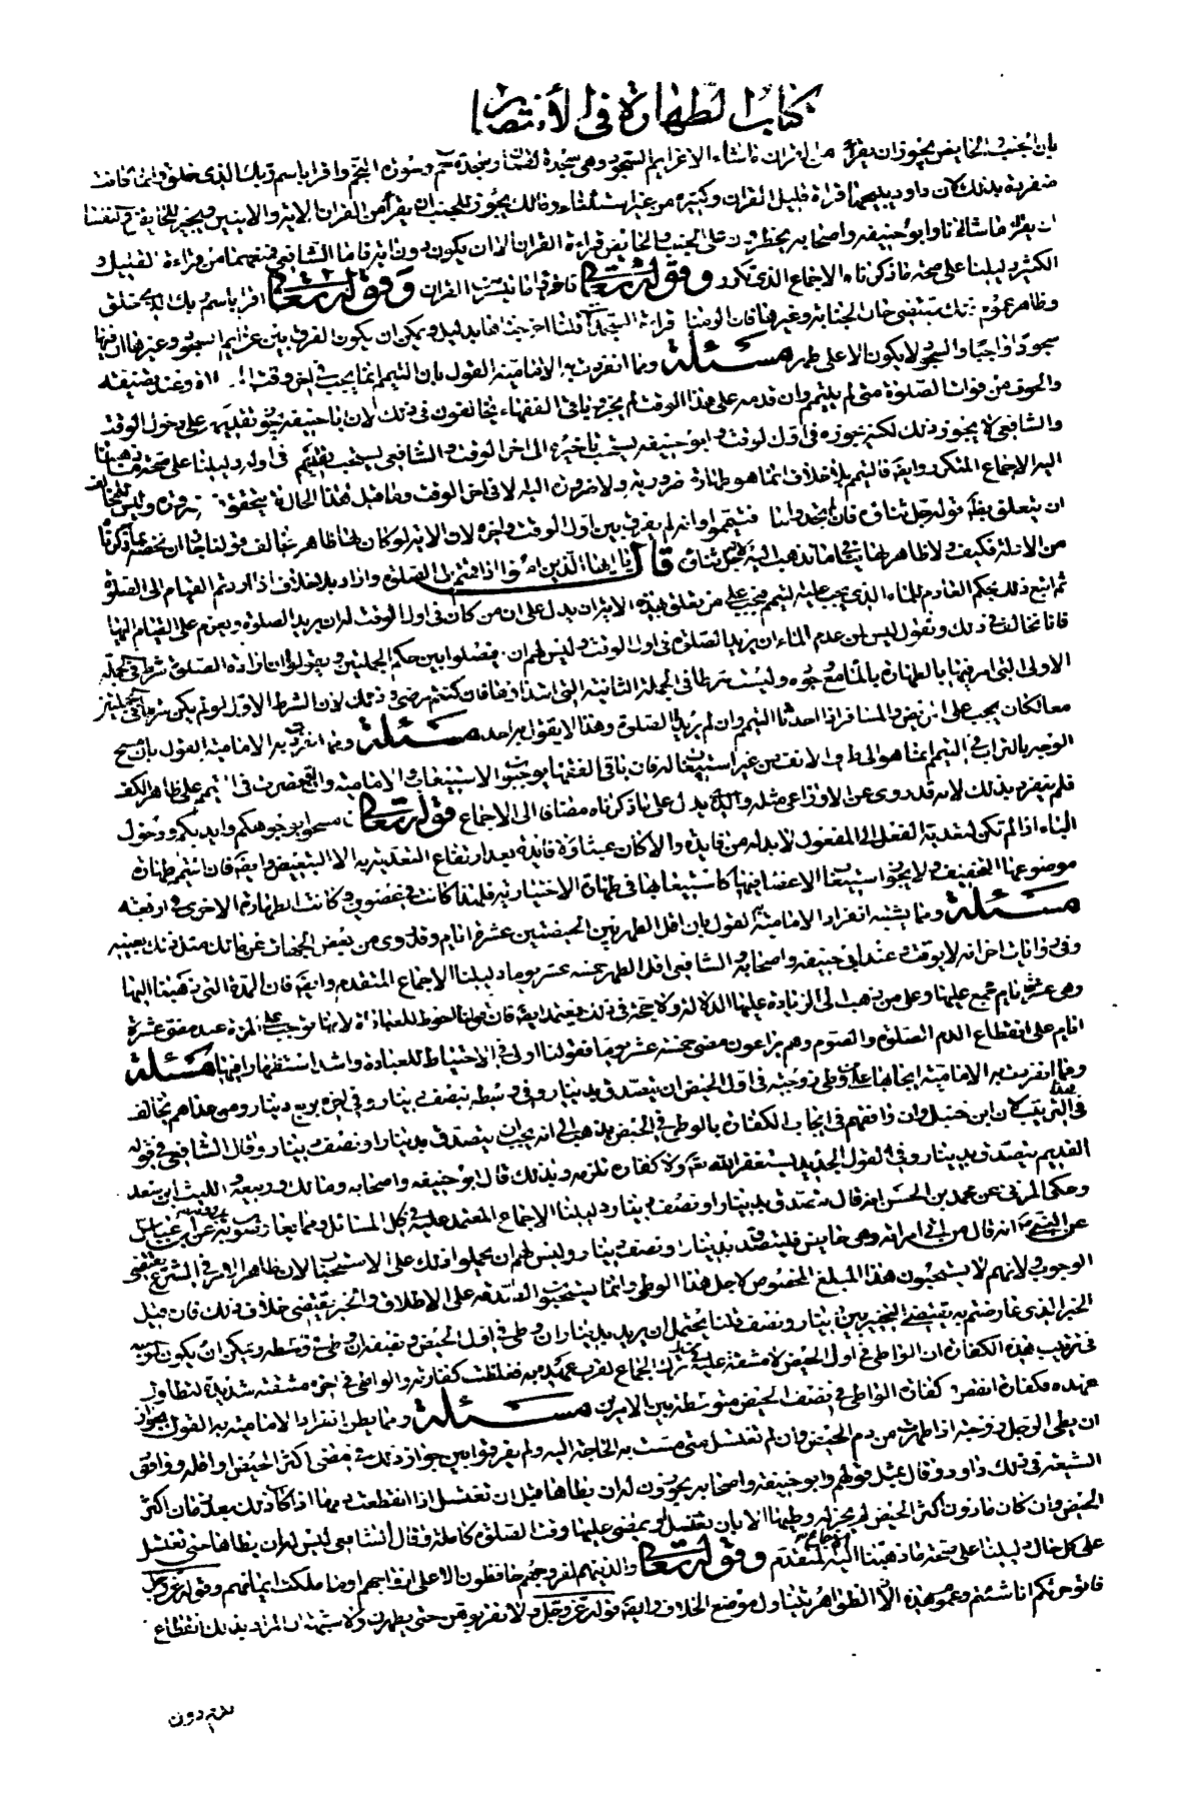 كتاب الطهارة في الأنتصار
بان الجنب والحايض يجوز ان يقرأ من القران ما شاء الا عزايم السجود وهى سجدة لقمان وسجدة حم وسورة النجم واقرا باسم ربك الذى خلق وانما كانت
داود يبيح قراءة قليل القران وكثيره من غير استثناء ومالك يجوز للجنب ان يقرأ من القران الاية والايتين ويجيز للحايض والنفساء
ان يقرأ ما شائنا وابو حنيفه واصحابه يحظرون على الجنب والحائض قراءة القران الا ان يكون دون اية فاما الشافعى فمنعهما من قراءة القليل و
الكثير دليلنا على صحة ما ذكرناه الاجماع الذى تكرر وقوله تعالى فاقرؤا ما تيسر من القران وقوله تعالى اقرا باسم ربك الذى خلق
وظاهر عموم ذلك يقتضى حال الجنابة وغيرها فان الزمنا قراءة السجدات قلنا اخرجناها بدليل ويمكن ان يكون الفرق بين عزايم السجود وغيرها ان فيها
سجودا واجبا والسجود لا يكون الا على طهر مسئلة ومما انفردت به الامامية القول بان التيمم انما يجب فى اخر وقت الصلاة وعند تضيقه
والخوف من فوات الصلوة متى لم يتيمم وان قدمه على هذا الوقت لم يجزه وباقى الفقهاء يخالفون فى ذلك لان ابا حنيفه يجوز تقديمه على دخول الوقت
والشافعى لا يجوز ذلك لكنه يجوزه فى اول الوقت وابو حنيفه يستحب تاخيره الى اخر الوقت والشافعى يستحب تقديمه فى اوله دليلنا على صحة ما ذهبنا
اليه الاجماع المتكرر وايضا فالتيمم بلا خلاف انما هو طهارة ضرورية ولا ضرورة اليه الا فى اخر الوقت وما قبل هذا الحال لا يتحقق ضرورة وليس للمخالف
ان يتعلق بقوله جل ثناؤه فان لم تجدوا ماء فتيمموا وانه لم يفرق بين اول الوقت واخره لان الاية لو كان لها ظاهر يخالف قولنا جاز ان نخصه بما ذكرناه
من الادلة فكيف ولا ظاهر لها ينافى ما نذهب اليه لانه جل ثناؤه قال يا ايها الذين امنوا اذا قمتم الى الصلوة واراد بلا خلاف اذا اردتم القيام الى الصلوة
ثم اتبع ذلك بحكم العادم للماء الذى يجب عليه التيمم فيجب على من تعلق بهذه الاية ان يدل على ان من كان فى اول الوقت له ان يريد الصلوة ويعزم على القيام اليها
فانا نخالف فى ذلك ونقول ليس لمن عدم الماء ان يريد الصلوة فى اول الوقت وليس لهم ان يفصلوا بين حكم الجملتين ويقولوا ان ارادة الصلوة شرط فى الجملة
الاولى التى امر فيها بالطهارة بالماء مع وجوده وليست شرطا فى الجملة الثانية التى ابتداؤها فان كنتم مرضى وذلك لان الشرط الاول لو لم يكن شرطا فى الجملتين
معا لكان يجب على المريض والمسافر اذا احدثا التيمم وان لم يريدا الصلوة وهذا لا يقوله احد مسئلة ومما انفردت به الامامية القول بان مسح
الوجه بالتراب فى التيمم انما هو الى طرف الانف من غير استيعاب له فان باقى الفقهاء يوجبون الاستيعاب والامامية وان اقتصرت فى التيمم على ظاهر الكف
فلم ينفرد بذلك لانه قد روى عن الاوزاعى مثله والذى يدل على ما ذكرناه مضافا الى الاجماع قوله تعالى فامسحوا بوجوهكم وايديكم ودخول
الباء اذا لم تكن لتعدية الفعل الى المفعول لا بد له من فائدة والا كان عبثا ولا فائدة بعد ارتفاع التعدية الا التبعيض وايضا فان التيمم طهارة
موضوعها التخفيف ولا يجوز استيعاب الاعضاء فيها كاستيعابها فى طهارة الاختيار فلهذا كانت فى عضوين وكانت الطهارة الاخرى فى اربعة
مسئلة ومما يشتبه انفراد الامامية به القول بان اقل الطهر بين الحيضتين عشرة ايام وقد روى من بعض الجهات عن مالك مثل ذلك بعينه
وفى روايات اخر انه لا يوقت وعند ابى حنيفه واصحابه والشافعى اقل الطهر خمسة عشر يوما دليلنا الاجماع المتقدم وايضا فان المدة التى ذهبنا اليها
وهى عشرة ايام مجمع عليها وعلى من ذهب الى الزيادة عليها الدلالة ولا حجة فى ذلك يعتمد وايضا فان قولنا احوط للعبادة لانا نوجب على المراة عند مضى عشرة
ايام على انقطاع الدم الصلوة والصوم وهم يراعون مضى خمسة عشر يوما فقولنا اولى فى الاحتياط للعبادة واشد استظهارا فيها مسئلة
ومما انفردت به الامامية ايجابها على من وطى زوجته فى اول الحيض ان يتصدق بدينار وفى وسطه نصف دينار وفى اخره ربع دينار ومن عداهم يخالف
فى هذا الترتيب لان ابن حنبل وان وافقهم فى ايجاب الكفارة بالوطى فى الحيض يذهب الى انه يجب ان يتصدق بدينار او نصف دينار وقال الشافعى فى قوله
القديم يتصدق بدينار وفى القول الجديد يستغفر الله تعالى ولا كفارة تلزمه وبذلك قال ابو حنيفه واصحابه ومالك وربيعه والليث ابن سعد
وحكى المزنى عن محمد بن الحسن انه قال يتصدق بدينار او نصف دينار دليلنا الاجماع المعتمد عليه فى كل المسائل ومما يعارضون به ما يروونه عن ابن عباس
عن النبى انه قال من اتى امراته وهى حايض فليتصدق بدينار او نصف دينار وليس لهم ان يحملوا ذلك على الاستحباب لان ظاهر الامر فى الشرع يقتضى
الوجوب ولانهم لا يستحبون هذا المبلغ المخصوص لاجل هذا الوطى وانما يستحبون الصدقة على الاطلاق والخبر يقتضى خلاف ذلك فان قيل
الخبر الذى عارضتم به يقتضى التخيير بين دينار ونصف قلنا يحتمل ان يريد بدينار ان وطى فى اول الحيض وبنصف ان وطى فى وسطه ويمكن ان يكون الوجه
فى ترتيب هذه الكفارة ان الواطى فى اول الحيض لا مشقة عليه فى ترك الجماع لقرب عهده به فغلظت كفارته والواطى فى اخره مشقته شديدة لتطاول
عهده فكفارته انقص وكفارة الواطى فى نصف الحيض متوسطة بين الامرين مسئلة ومما يظن انفراد الامامية به القول بجواز
ان يطى الرجل زوجته اذا طهرت من دم الحيض وان لم تغتسل متى مست به الحاجة اليه ولم يفرقوا بين جواز ذلك فى مضى اكثر الحيض او اقله ووافق
الشيعة فى ذلك داود وقال بمثل قولهم وابو حنيفه واصحابه يجوزون له ان يطاها قبل ان تغتسل اذا انقطعت دمها اذا كان ذلك بعد زمان اكثر
الحيض وان كان فى دون اكثر الحيض لم يجز له وطيها الا بان تغتسل او يمضى عليها وقت الصلوة كاملة وقال الشافعى ليس له ان يطاها حتى تغتسل
على كل حال دليلنا على صحة ما ذهبنا اليه الاجماع المتقدم وقوله تعالى والذين هم لفروجهم حافظون الا على ازواجهم او ما ملكت ايمانهم وقوله عز وجل
فاتوا حرثكم انى شئتم وعموم هذه الظواهر يتناول موضع الخلاف وايضا قوله عز وجل ولا تقربوهن حتى يطهرن ولا شبهة فى ان المراد بذلك انقطاع